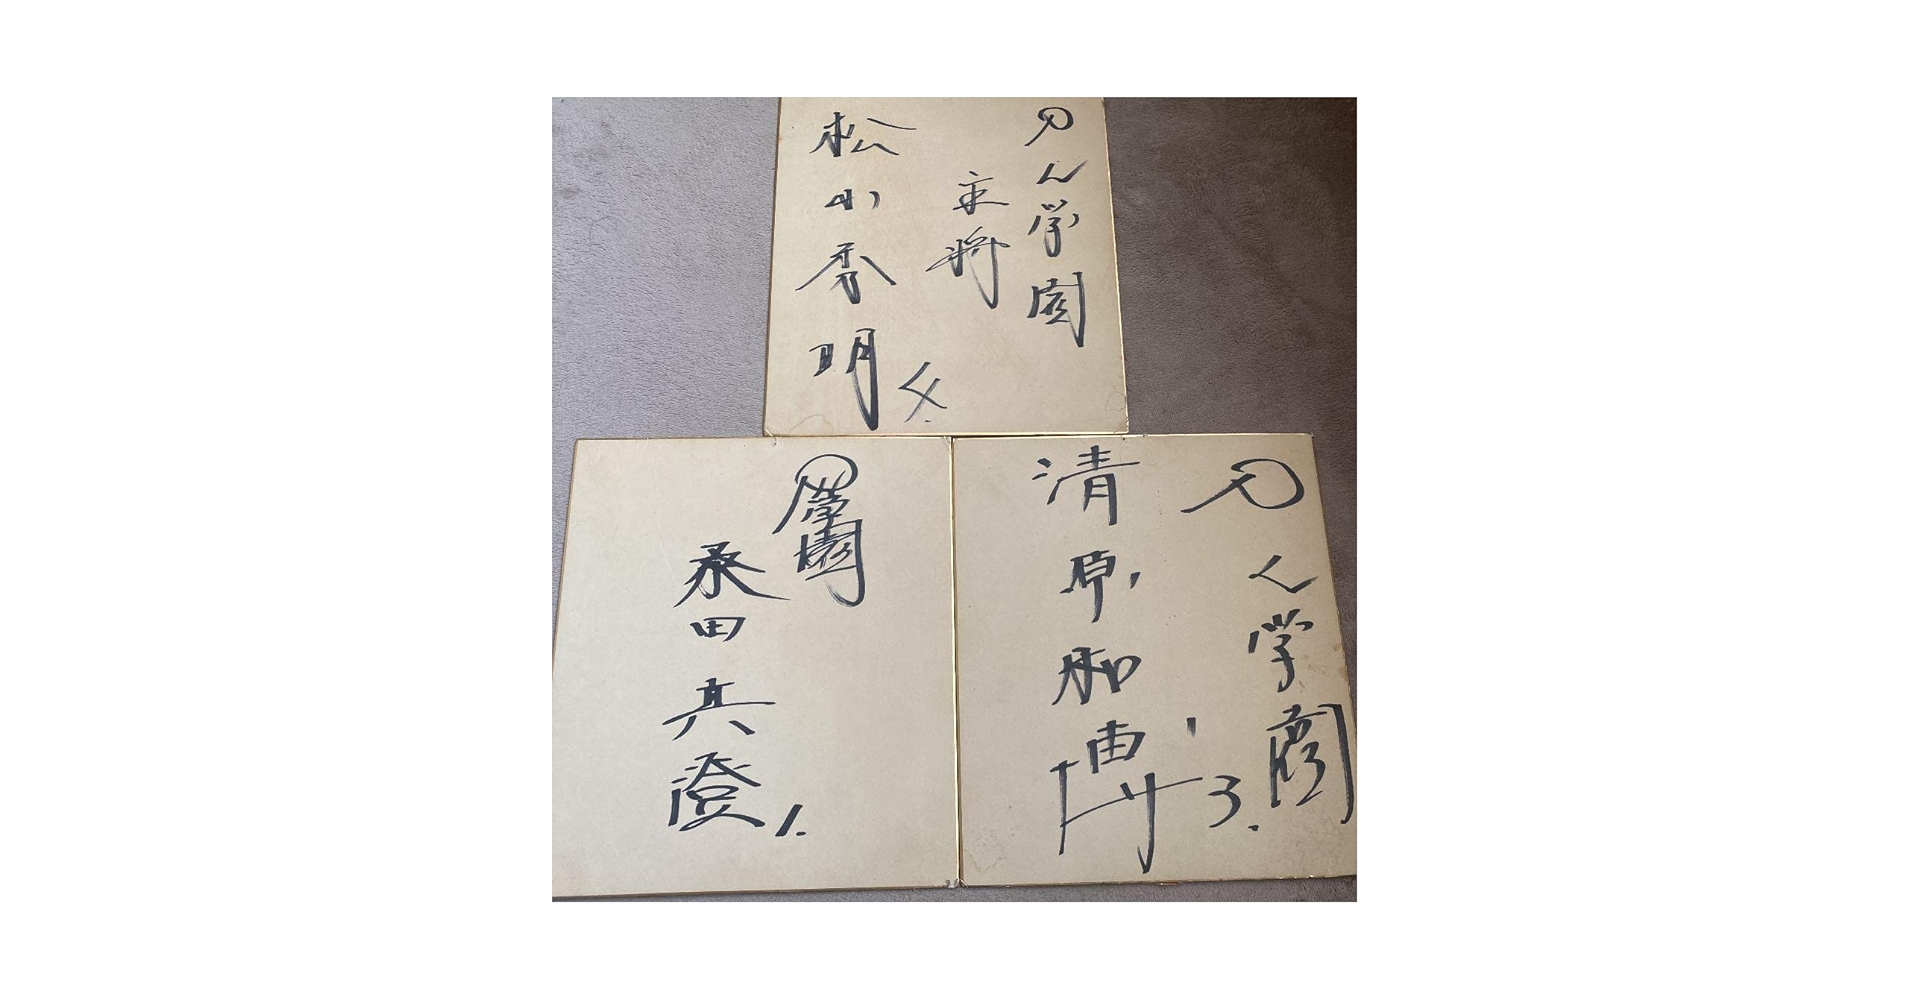 PL学園
主将
松山秀明
4.
PL学園
桑田真澄
1.
PL学園
清原和博
3.